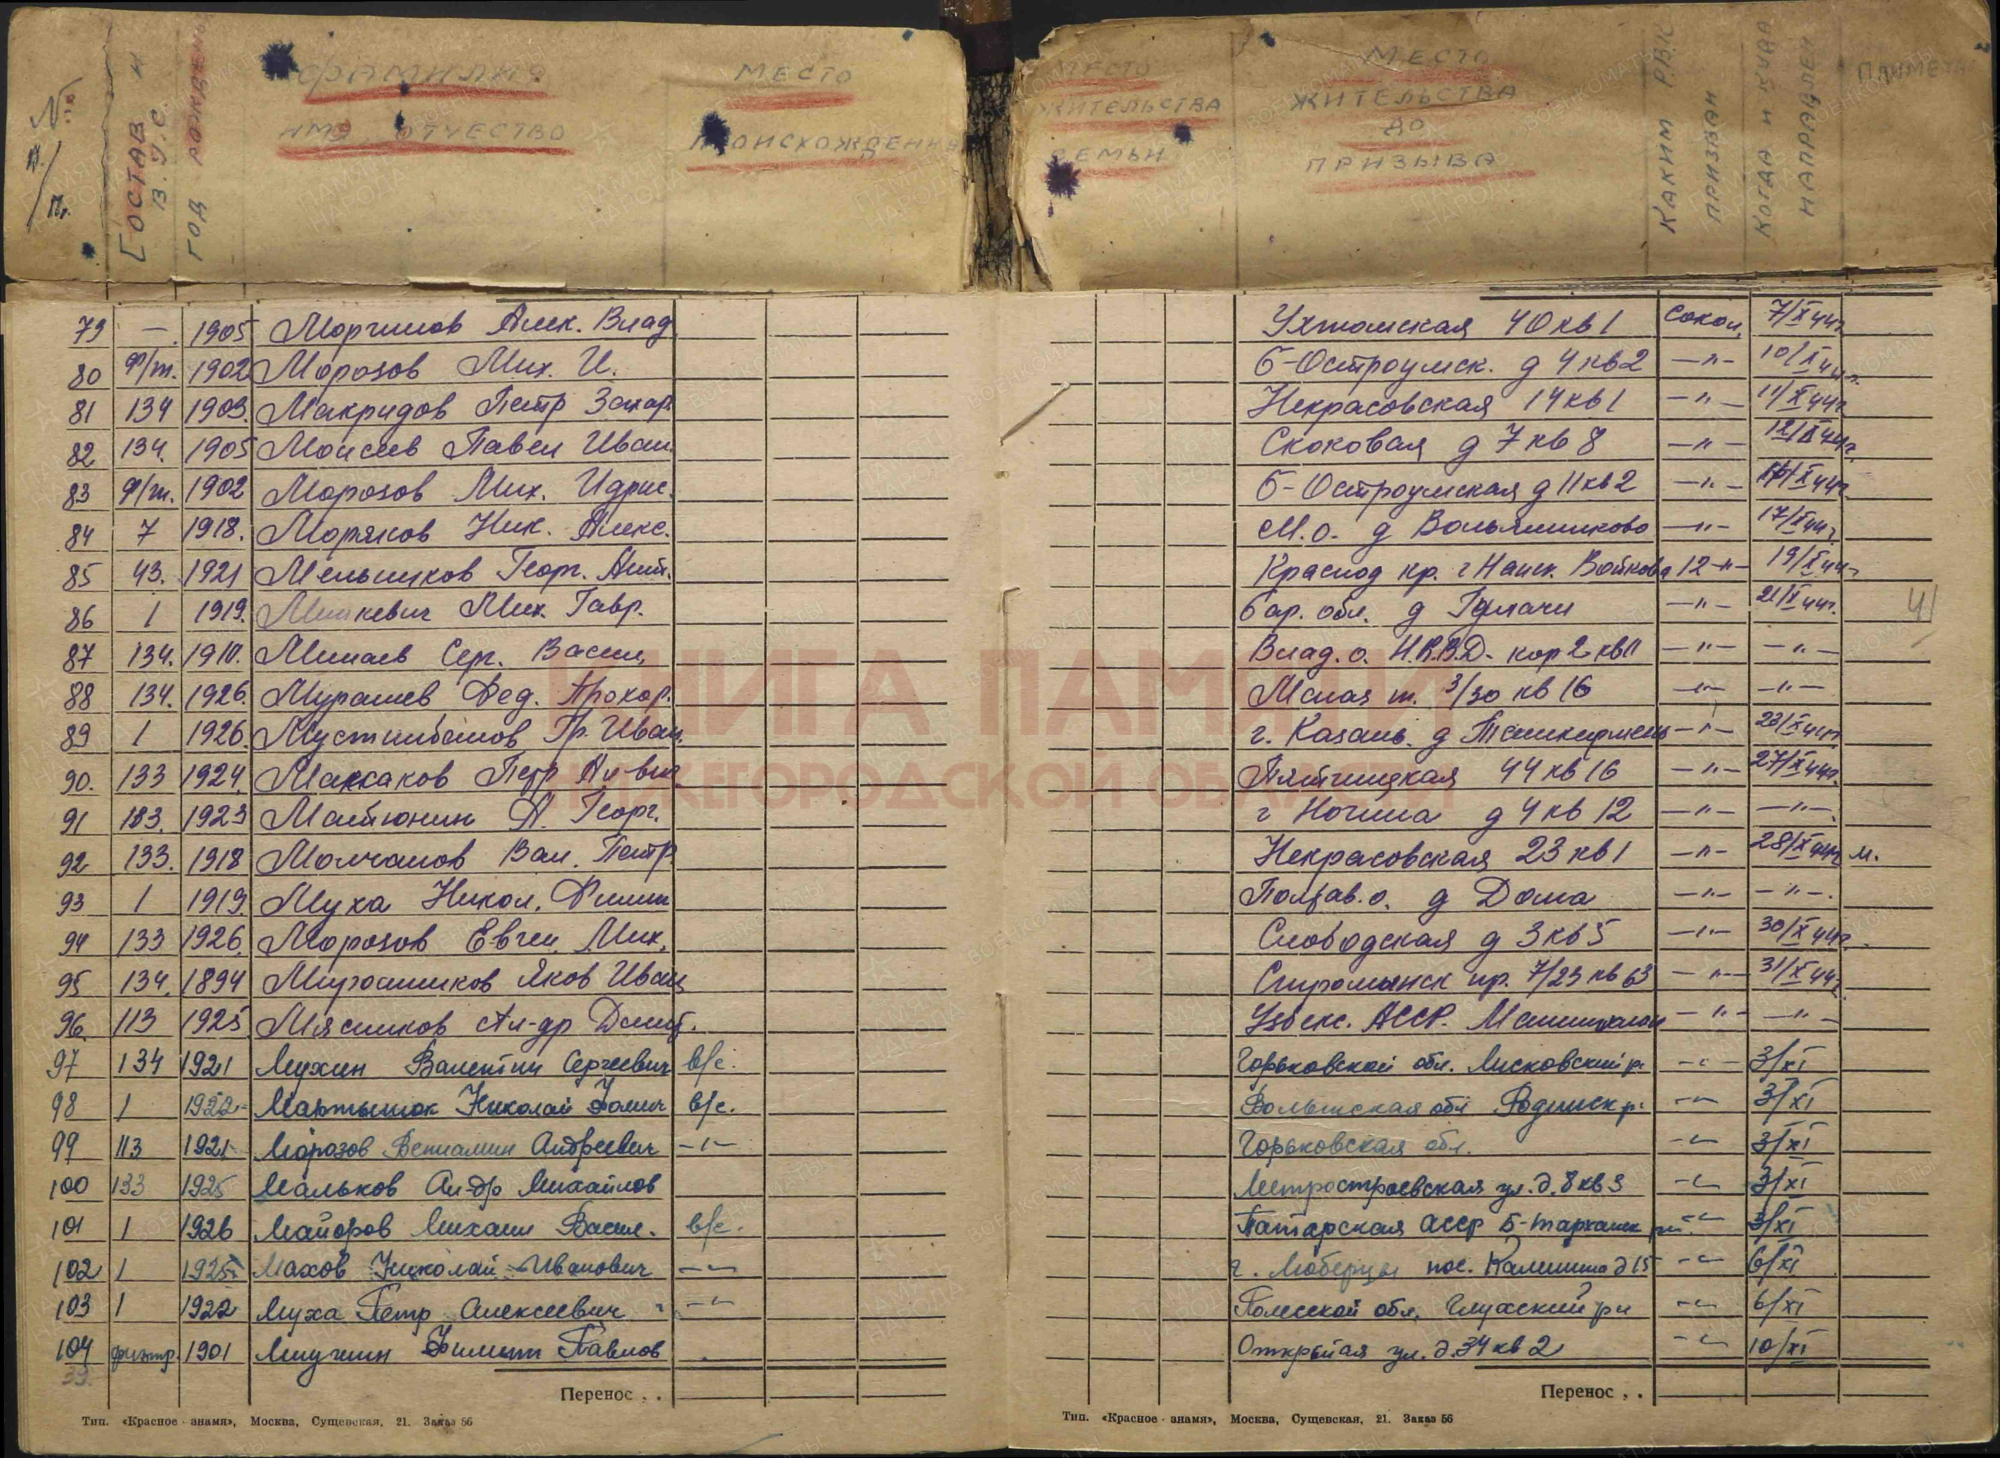 № п/п.
СОСТАВ И В.У.С.
ГОД РОЖДЕНЬ
ФАМИЛИЯ
ИМЯ ОТЧЕСТВО
МЕСТО
ПРОИСХОЖДЕНИЯ
МЕСТО
ЖИТЕЛЬСТВА
СЕМЬИ
МЕСТО
ЖИТЕЛЬСТВА
ДО
ПРИЗЫВА
КАКИМ РВК
ПРИЗВАН
КОГДА И КУДА
НАПРАВЛЕН
ПРИМЕЧА
79 — 1905 Алек. Влад Ухтомская 40 кв 1 Сокол. 7/X 44г.
80 Ф/т. 1902 Морозов Мих. И. Б-Остроумск. д 4 кв 2 —"— 10/X 44г.
81 134 1903. Макридов Петр Захар. Некрасовская 14 кв 1 —"— 11/X 44г.
82 134. 1905 Моисеев Павел Иван. д 7 кв 8 —"— 12/X 44г.
83 Ф/т. 1902 Морозов Мих. Б-Остроумская д 11 кв 2 —"— /X 44г.
84 7 1918. Моряков Ник. Алекс. М.о. д —"— 17/X 44г.
85 43. 1921 Мельников Георг. Ант. Краснод кр. —"— 19/X 44г.
86 1 1919. Мих. Гавр. Бар. обл. д —"— 21/X 44г.
87 134. 1910. Минаев Серг. Васил. Влад. о. Н.К.В.Д. кор 2 —"— —"—
88 134. 1926. Мурашев Фед. Прохор. т. 3/30 кв 16 —"— —"—
89 1 1926. Гр. Иван. г. Казань. д Ташкирмень —"— 23/X 44г.
90. 133 1924. Максаков Петр Пятницкая 44 кв 16 —"— 27/X 44г.
91 133. 1923 Матюнин А. Георг. г д 4 кв 12 —"— —"—
92 133. 1918 Молчанов Вал. Петр Некрасовская 23 кв 1 —"— 28/X 44г. м.
93 1 1919. Муха Никол. Филип Полтав. о. д —"— —"—.
94 133 1926. Морозов Евген. Мих. Слободская д 3 кв 5 —"— 30/X 44г.
95 134. 1894 Мирошников Яков Иван Стромынск пр. 7/23 кв 63 —"— 31/X 44г.
96. 113 1925. Мясников Ал-др Дмит. Узбекс. АССР. —"— —"—
97 134 1921 Мухин Валентин Сергеевич в/с. Горьковской обл. Лисковский р. —"— 3/XI
98 1 1922 Мартынюк Николай в/с. Волынская обл р. —"— 3/XI
99 113 1921 Морозов Вениамин Андреевич —"— Горьковская обл. —"— 3/XI
100 133 1925 Мальков Ал-др Михайлов Метростроевская ул. д. 8 кв 3 —"— 3/XI
101 1 1926 Майоров Михаил Васил. в/с. Татарская АССР Б-тарханск рн —"— 3/XI
102 1 1925 Махов Николай Иванович —"— г. Люберцы пос. Калинина д 15 —"— 6/XI
103 1 1922 Муха Петр Алексеевич —"— Полесской обл. Глусский рн —"— 6/XI
104 1901 Филипп Павлов Открытая ул. д. 34 кв 2 —"— 10/XI
41
Перенос . .
Перенос . .
Тип. «Красное знамя», Москва, Сущевская, 21. Заказ 56
Тип. «Красное знамя», Москва, Сущевская, 21. Заказ 56
КНИГА ПАМЯТИ
НИЖЕГОРОДСКОЙ ОБЛАСТИ